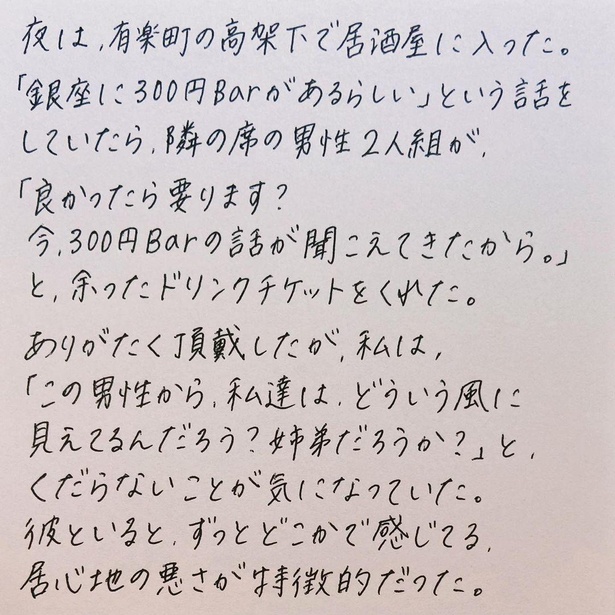 夜は,有楽町の高架下で居酒屋に入った。
「銀座に300円Barがあるらしい」という話を
していたら,隣の席の男性2人組が,
「良かったら要ります?
今,300円Barの話が聞こえてきたから。」
と,余ったドリンクチケットをくれた。
ありがたく頂戴したが,私は,
「この男性から,私達は,どういう風に
見えてるんだろう?姉弟だろうか?」と,
くだらないことが気になっていた。
彼といると,ずっとどこかで感じてる,
居心地の悪さが特徴的だった。